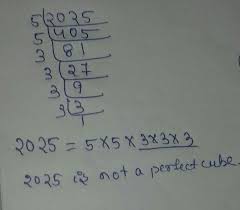 5|2025
5|405
3|81
3|27
3|9
3|3
1
2025 = 5×5×3×3×3
2025 is not a perfect cube.